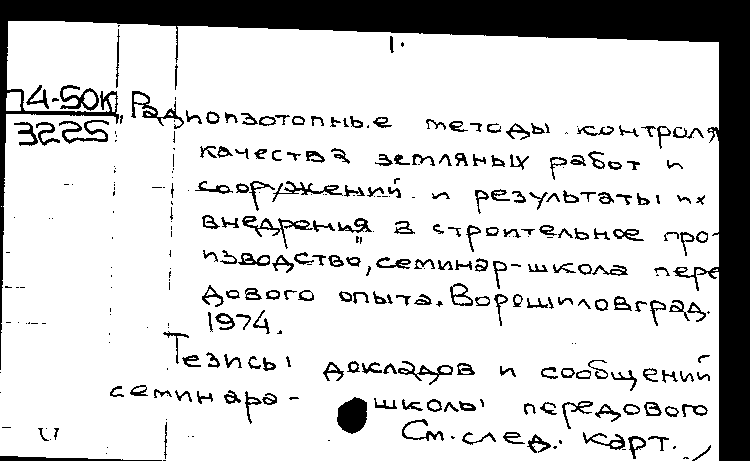 1.
74-50К
3225
„Радиоизотопные методы контроля
качества земляных работ и
сооружений и результаты их
внедрения" в строительное про-
изводство, семинар-школа пере
дового опыта. Ворошиловград.
1974.
Тезисы докладов и сообщений
семинара- школы передового
См. след. карт.